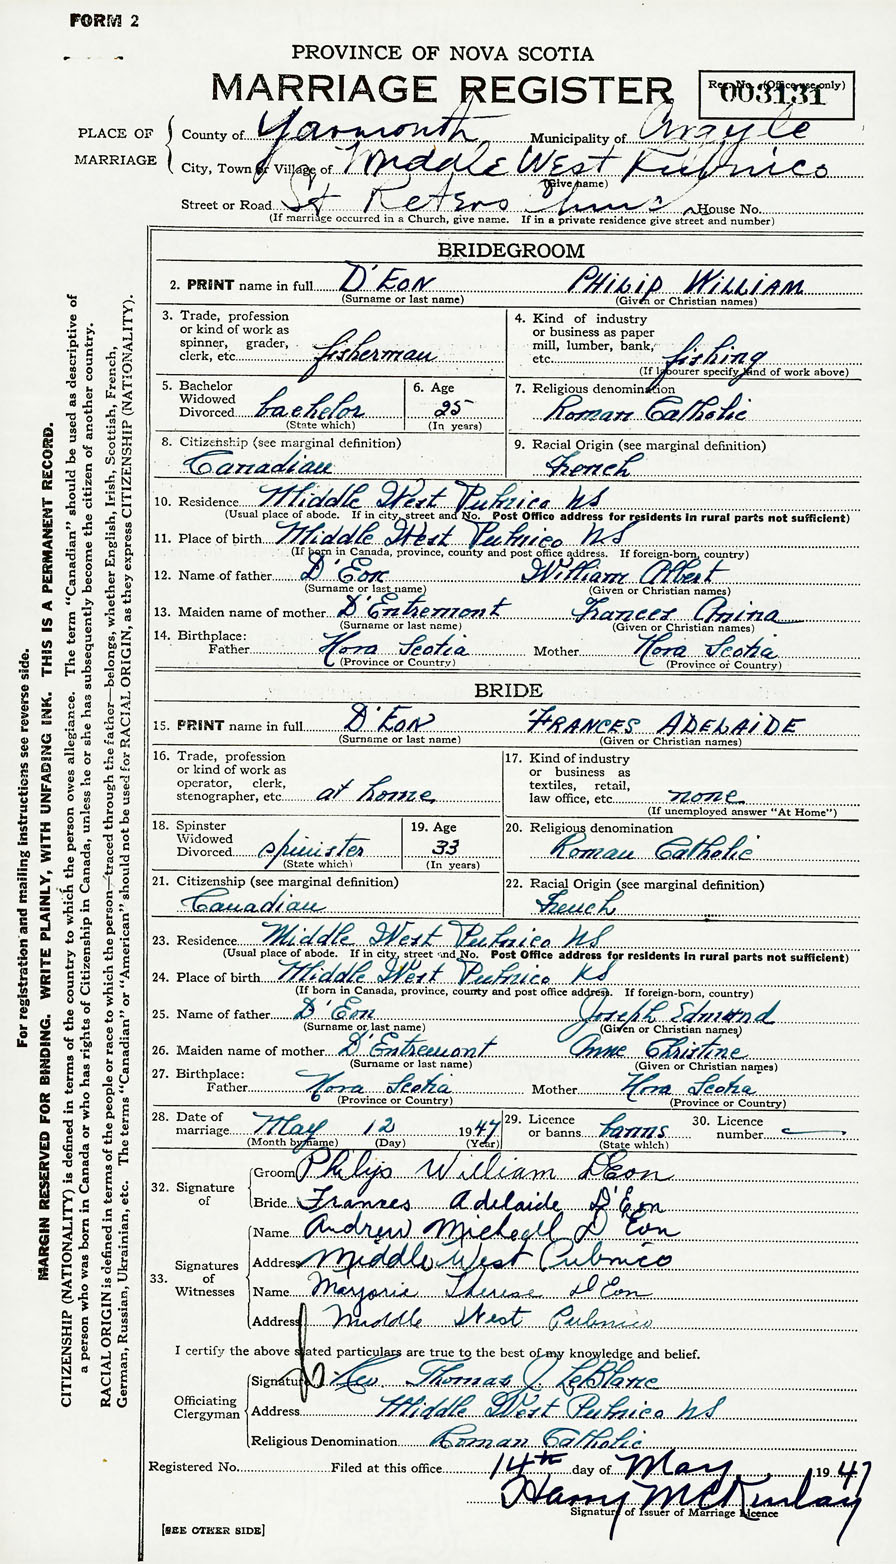 FORM 2
PROVINCE OF NOVA SCOTIA
MARRIAGE REGISTER
Reg. No. (Office use only)
003131
PLACE OF MARRIAGE
County of Yarmouth Municipality of Argyle
City, Town or Village of Middle West Pubnico
(Give name)
Street or Road St Peters House No.
(If marriage occurred in a Church, give name. If in a private residence give street and number)
BRIDEGROOM
2. PRINT name in full D'EON PHILIP WILLIAM
(Surname or last name) (Given or Christian names)
3. Trade, profession or kind of work as spinner, grader, clerk, etc. fisherman
4. Kind of industry or business as paper mill, lumber, bank, etc. fishing
(If labourer specify kind of work above)
5. Bachelor Widowed Divorced bachelor
(State which)
6. Age 25
(In years)
7. Religious denomination
Roman Catholic
8. Citizenship (see marginal definition)
Canadian
9. Racial Origin (see marginal definition)
French
10. Residence Middle West Pubnico NS
(Usual place of abode. If in city, street and No. Post Office address for residents in rural parts not sufficient)
11. Place of birth Middle West Pubnico NS
(If born in Canada, province, county and post office address. If foreign-born, country)
12. Name of father D'Eon William Albert
(Surname or last name) (Given or Christian names)
13. Maiden name of mother D'Entremont Frances Anina
(Surname or last name) (Given or Christian names)
14. Birthplace:
Father Nova Scotia Mother Nova Scotia
(Province or Country) (Province or Country)
BRIDE
15. PRINT name in full D'EON FRANCES ADELAIDE
(Surname or last name) (Given or Christian names)
16. Trade, profession or kind of work as operator, clerk, stenographer, etc. at home
17. Kind of industry or business as textiles, retail, law office, etc. none
(If unemployed answer "At Home")
18. Spinster Widowed Divorced spinister
(State which)
19. Age 33
(In years)
20. Religious denomination
Roman Catholic
21. Citizenship (see marginal definition)
Canadian
22. Racial Origin (see marginal definition)
French
23. Residence Middle West Pubnico NS
(Usual place of abode. If in city, street and No. Post Office address for residents in rural parts not sufficient)
24. Place of birth Middle West Pubnico NS
(If born in Canada, province, county and post office address. If foreign-born, country)
25. Name of father D'Eon Joseph Edmund
(Surname or last name) (Given or Christian names)
26. Maiden name of mother D'Entremont Anne Christine
(Surname or last name) (Given or Christian names)
27. Birthplace:
Father Nova Scotia Mother Nova Scotia
(Province or Country) (Province or Country)
28. Date of marriage May 12 1947
(Month by name) (Day) (Year)
29. Licence or banns banns
(State which)
30. Licence number
32. Signature of
Groom Philip William D'Eon
Bride Frances Adelaide D'Eon
33. Signatures of Witnesses
Name Andrew Micheall D'Eon
Address Middle West Pubnico
Name Marjorie Therese D'Eon
Address Middle West Pubnico
I certify the above stated particulars are true to the best of my knowledge and belief.
Officiating Clergyman
Signature Rev Thomas J LeBlanc
Address Middle West Pubnico NS
Religious Denomination Roman Catholic
Registered No. Filed at this office 14th day of May 1947
Harry McKinlay
Signature of Issuer of Marriage Licence
[SEE OTHER SIDE]
For registration and mailing instructions see reverse side.
MARGIN RESERVED FOR BINDING. WRITE PLAINLY, WITH UNFADING INK. THIS IS A PERMANENT RECORD.
CITIZENSHIP (NATIONALITY) is defined in terms of the country to which the person owes allegiance. The term "Canadian" should be used as descriptive of
a person who was born in Canada or who has rights of Citizenship in Canada, unless he or she has subsequently become the citizen of another country.
RACIAL ORIGIN is defined in terms of the people or race to which the person—traced through the father—belongs, whether English, Irish, Scottish, French,
German, Russian, Ukrainian, etc. The terms "Canadian" or "American" should not be used for RACIAL ORIGIN, as they express CITIZENSHIP (NATIONALITY).